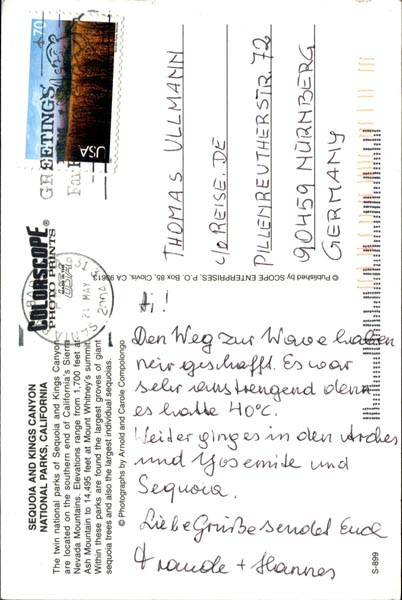 SEQUOIA AND KINGS CANYON
NATIONAL PARKS, CALIFORNIA
The twin national parks of Sequoia and Kings Canyon
are located on the southern end of California's Sierra
Nevada Mountains. Elevations range from 1,700 feet at
Ash Mountain to 14,495 feet at Mount Whitney's summit.
Within these parks are found the largest groves of giant
sequoia trees and also the largest individual sequoias.
© Photographs by Arnold and Carole Compolongo
COLORSCOPE®
PHOTO PRINTS
© Published by SCOPE ENTERPRISES, P.O. Box 85, Clovis, CA 93613
S-899
GREETINGS
USA
70
21 MAY
Hi!
Den Weg zur Wave haben
wir geschafft. Es war
sehr anstrengend denn
es hatte 40°C.
Weiter ging es in den Arches
und Yosemite und
Sequoia.
Liebe Grüße sendet Euch
+ Hannes
THOMAS ULLMANN
c/o REISE.DE
PILLENREUTHERSTR. 72
90459 NÜRNBERG
GERMANY